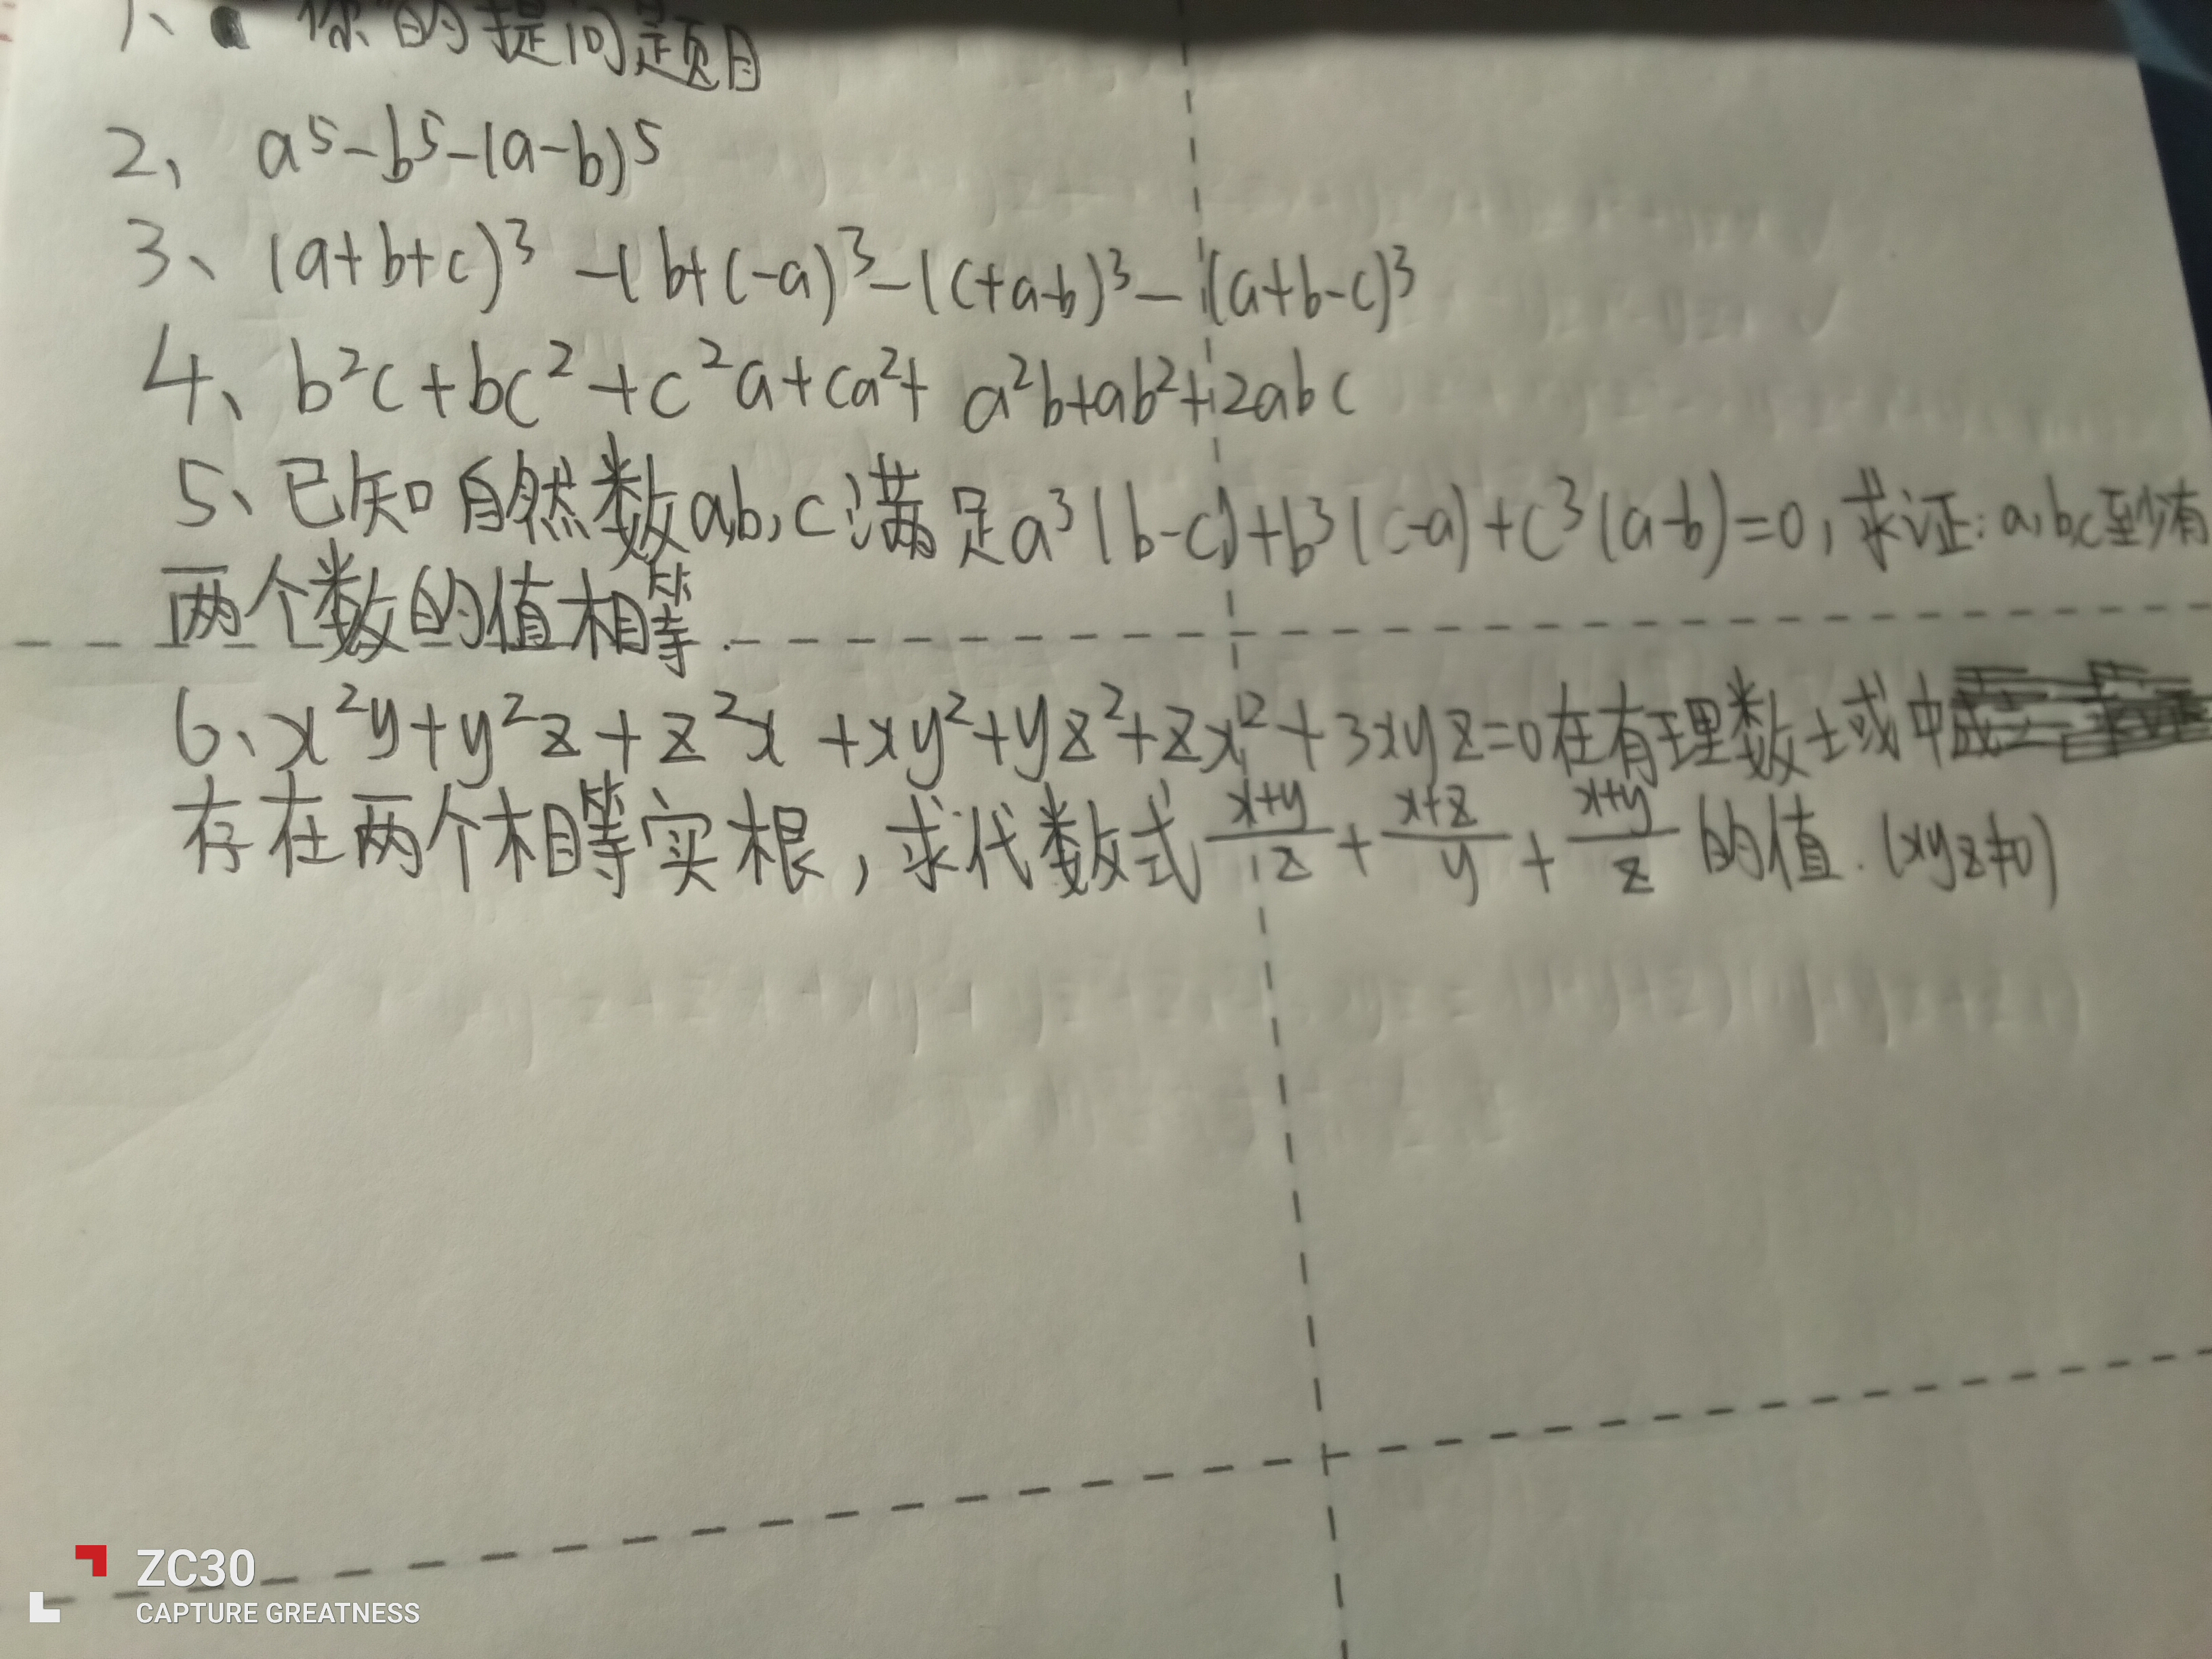 1、 你的提问题目
2、 a⁵-b⁵-(a-b)⁵
3、(a+b+c)³-(b+c-a)³-(c+a-b)³-(a+b-c)³
4、b²c+bc²+c²a+ca²+a²b+ab²+2abc
5、已知自然数a,b,c满足a³(b-c)+b³(c-a)+c³(a-b)=0,求证:a,b,c至少有
两个数的值相等.
6、x²y+y²z+z²x+xy²+yz²+zx²+3xyz=0在有理数士或中
存在两个相等实根,求代数式 (x+y)/z + (x+z)/y + (x+y)/z 的值.(xyz≠0)
ZC30
CAPTURE GREATNESS